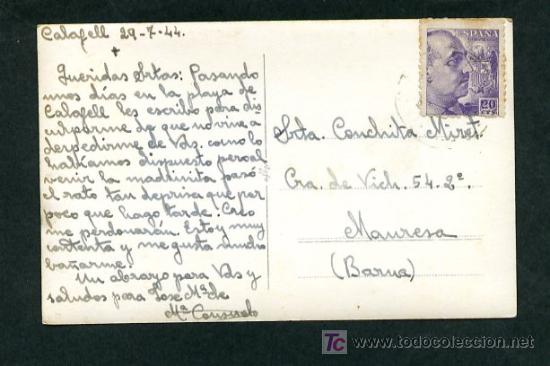 Calafell 29-7-44.
+
Queridas Srtas: Pasando
unos días en la playa de
Calafell les escribo para dis
culparme de que no vine a
despedirme de Vds. como lo
habiamos dispuesto pero al
venir la madrinita pasó
el rato tan deprisa que por
poco que hago tarde. Creo
me perdonarán. Estoy muy
contenta y me gusta mucho
bañarme.
Un abrazo para Vds y
saludos para Jose Mª de
Mª Consuelo
ESPAÑA
20
CTS
Srta. Conchita Miret
Cra. de Vich. 54. 2º.
Manresa
(Barna)
todocoleccion
www.todocoleccion.net